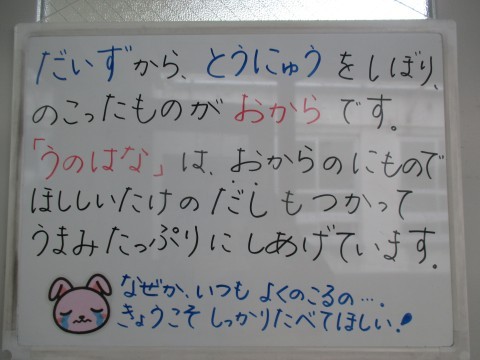 だいずから、とうにゅうをしぼり、
のこったものがおからです。
「うのはな」は、おからのにもので
ほししいたけのだしもつかって
うまみたっぷりにしあげています。
なぜか、いつもよくのこるの…。
きょうこそしっかりたべてほしい!